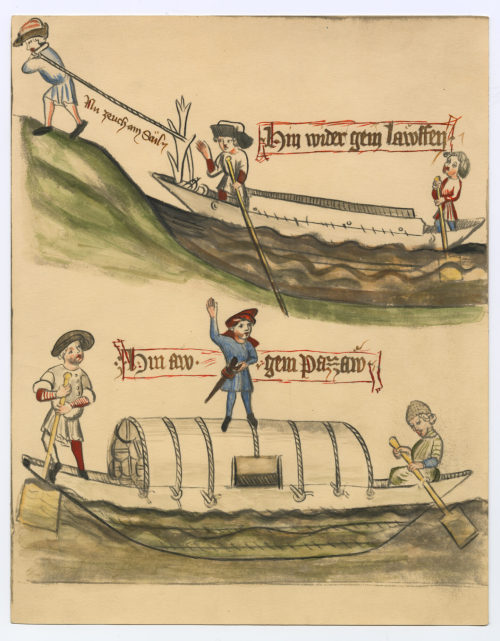 Nu zeuch am Säil
Hin wider gem lawffen
Hin aw · gem Pazzaw